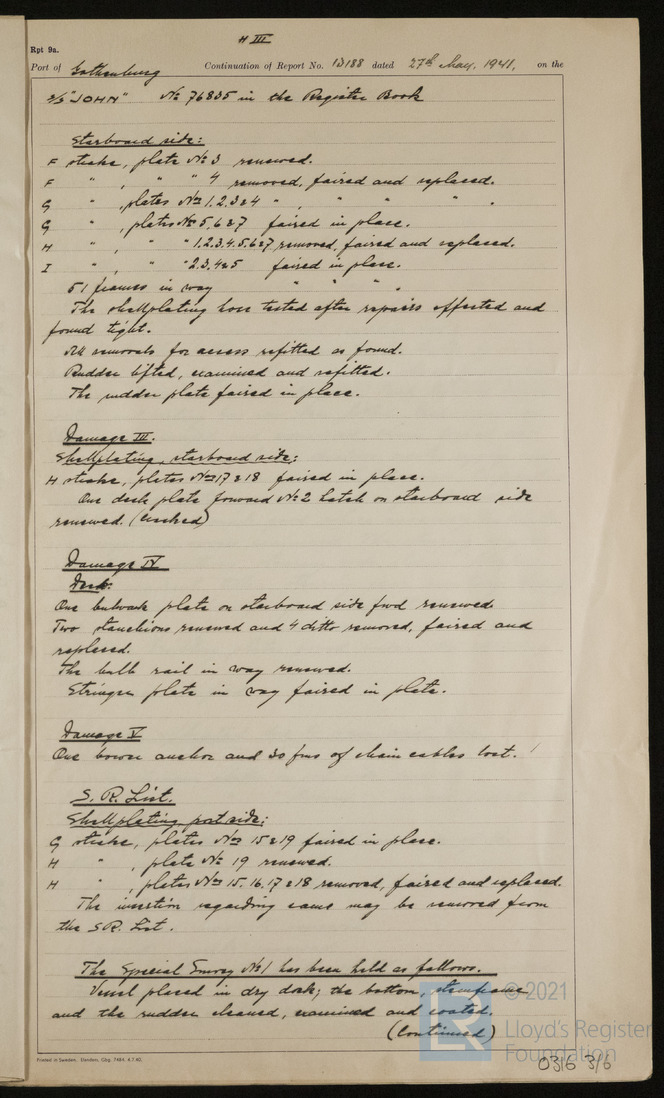 H III
Rpt 9a.
Port of Gothenburg Continuation of Report No. 13188 dated 27th May, 1941, on the
S/S "JOHN" No 76835 in the Register Book
Starboard side:
F strake, plate No 3 renewed.
F " , " " 4 removed, faired and replaced.
G " , plates Nos 1,2,3&4 " , " " " .
G " , plates Nos 5,6&7 faired in place.
H " , " " 1,2,3,4,5,6&7 removed, faired and replaced.
I " , " " 2,3,4&5 faired in place.
51 frames in way " " " .
The shellplating hose tested after repairs effected and
found tight.
All removals for access refitted as found.
Rudder lifted, examined and refitted.
The rudder plate faired in place.
Damage III.
Shellplating, starboard side:
H strake, plates Nos 17&18 faired in place.
One deck plate forward No 2 hatch on starboard side
renewed. (Cracked)
Damage IV
Deck:
One bulwark plate on starboard side fwd renewed.
Two stanchions renewed and 4 ditto removed, faired and
replaced.
The bulb rail in way renewed.
Stringer plate in way faired in plate.
Damage V
One bower anchor and 30 fms of chain cables lost.
S. R. List.
Shellplating, port side:
G strake, plates Nos 15&19 faired in place.
H " , plate No 19 renewed.
H " , plates Nos 15,16,17&18 removed, faired and replaced.
The insertion regarding same may be removed from
the S.R. List.
The Special Survey No 1 has been held as follows.
Vessel placed in dry dock; the bottom, sternframe
and the rudder cleaned, examined and coated.
(Continued)
© 2021
Lloyd's Register
Foundation
Printed in Sweden. Elanders, Gbg. 7484. 4.7.40.
0316 3/6